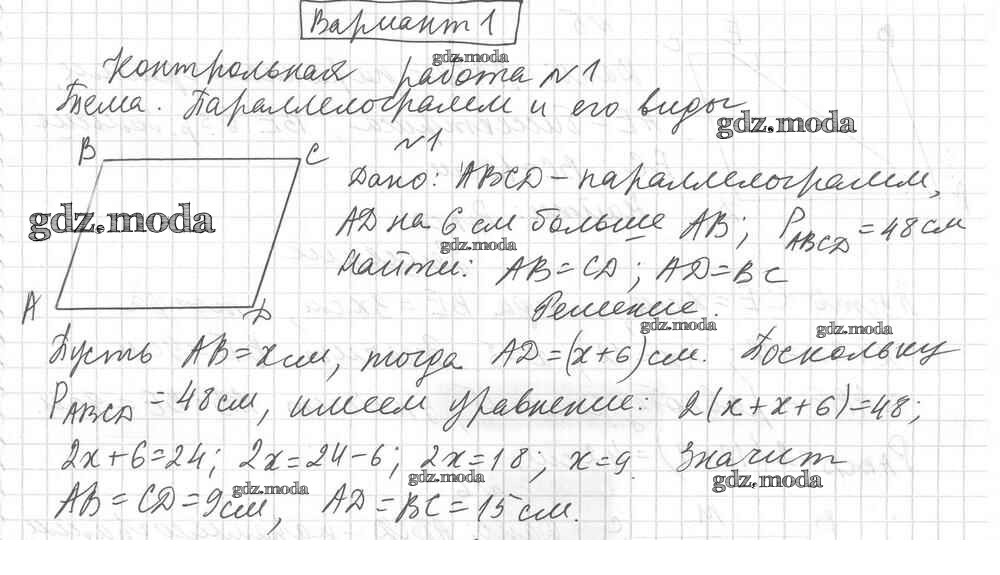 Вариант 1
Контрольная работа №1
gdz.moda
Тема. Параллелограмм и его виды
gdz.moda
№1
B C
Дано: ABCD - параллелограмм,
gdz.moda
AD на 6 см больше AB; P_ABCD = 48 см
gdz.moda
Найти: AB = CD; AD = BC
A D
Решение.
gdz.moda
gdz.moda
Пусть AB = x см, тогда AD = (x+6) см. Поскольку
P_ABCD = 48 см, имеем уравнение: 2(x+x+6)=48;
2x+6=24; 2x=24-6; 2x=18; x=9. Значит
gdz.moda
gdz.moda
AB = CD = 9 см, AD = BC = 15 см.